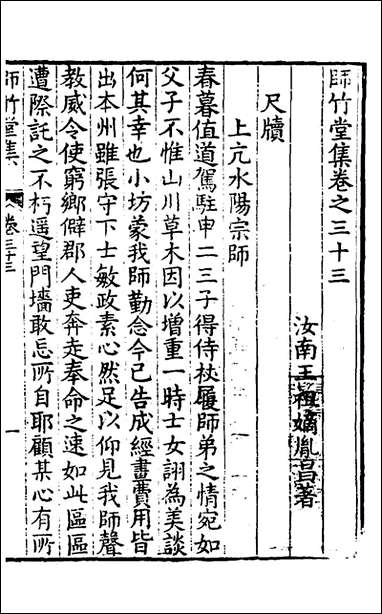 師竹堂集卷之三十三
汝南王祖嫡胤昌著
尺牘
上亢水陽宗師
春暮值道駕駐申二三子得侍杖屨師弟之情宛如
父子不惟山川草木因以增重一時士女詡為美談
何其幸也小坊蒙我師勤念今已告成經畫費用皆
出本州雖張守下士敏政素心然足以仰見我師聲
教威令使窮鄉僻郡人吏奔走奉命之速如此區區
遭際託之不朽遥望門墻敢忘所自耶顧某心有所
師竹堂集
卷三十三
一